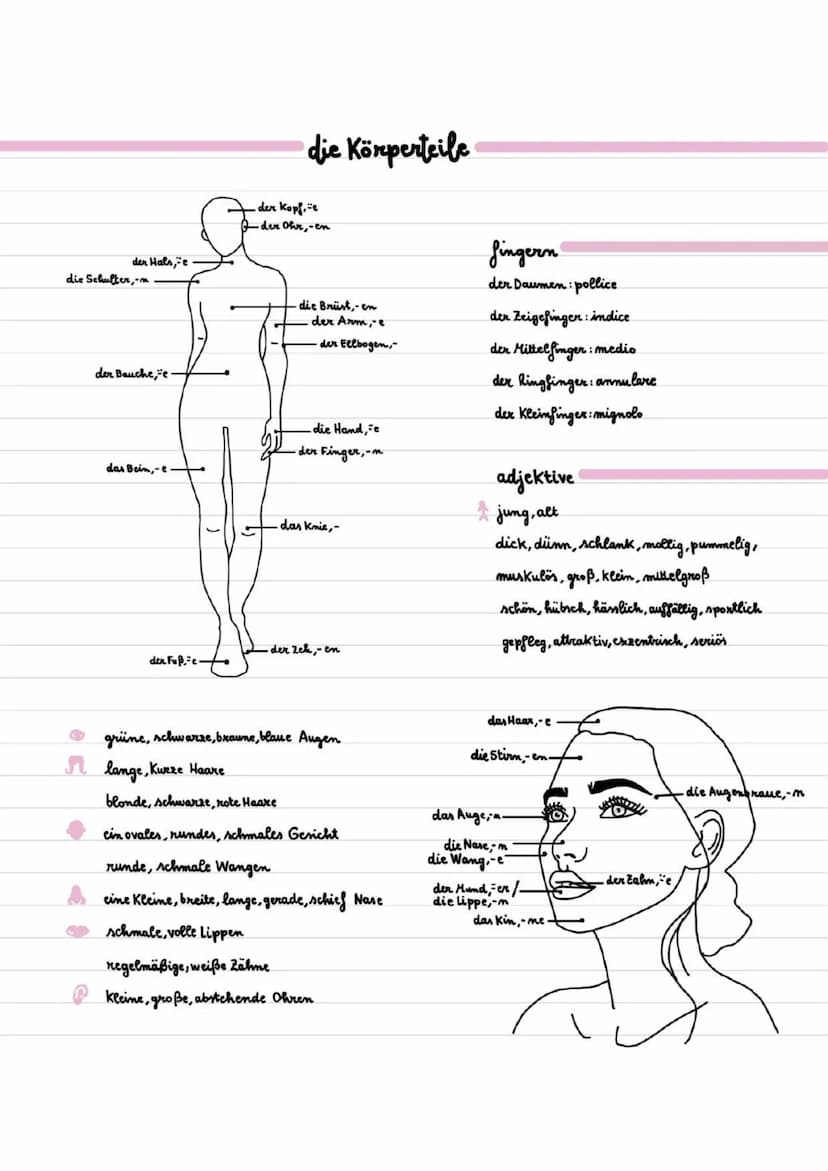 die Körperteile
der Kopf,-̈e
der Ohr,-en
der Hals,-̈e
die Schulter,-n
die Brüst,-en
der Arm,-e
der Ellbogen,-
der Bauche,-̈e
die Hand,-̈e
der Finger,-n
das Bein,-e
das Knie,-
der Zeh,-en
der Fuß,-̈e
fingern
der Daumen: pollice
der Zeigefinger: indice
der Mittelfinger: medio
der Ringfinger: annulare
der Kleinfinger: mignolo
adjektive
jung, alt
dick, dünn, schlank, mollig, pummelig,
muskulös, groß, klein, mittelgroß
schön, hübsch, hässlich, auffällig, sportlich
gepfleg, attraktiv, exzentrisch, seriös
grüne, schwarze, braune, blaue Augen
lange, Kurze Haare
blonde, schwarze, rote Haare
ein ovales, rundes, schmales Gesicht
runde, schmale Wangen
eine Kleine, breite, lange, gerade, schief Nase
schmale, volle Lippen
regelmäßige, weiße Zähne
Kleine, große, abstehende Ohren
das Haar,-e
die Stirn,-en
die Augenbraue,-n
das Auge,-n
die Nase,-n
die Wang,-e
der Zahn,-̈e
der Mund,-̈er /
die Lippe,-n
das Kin,-ne